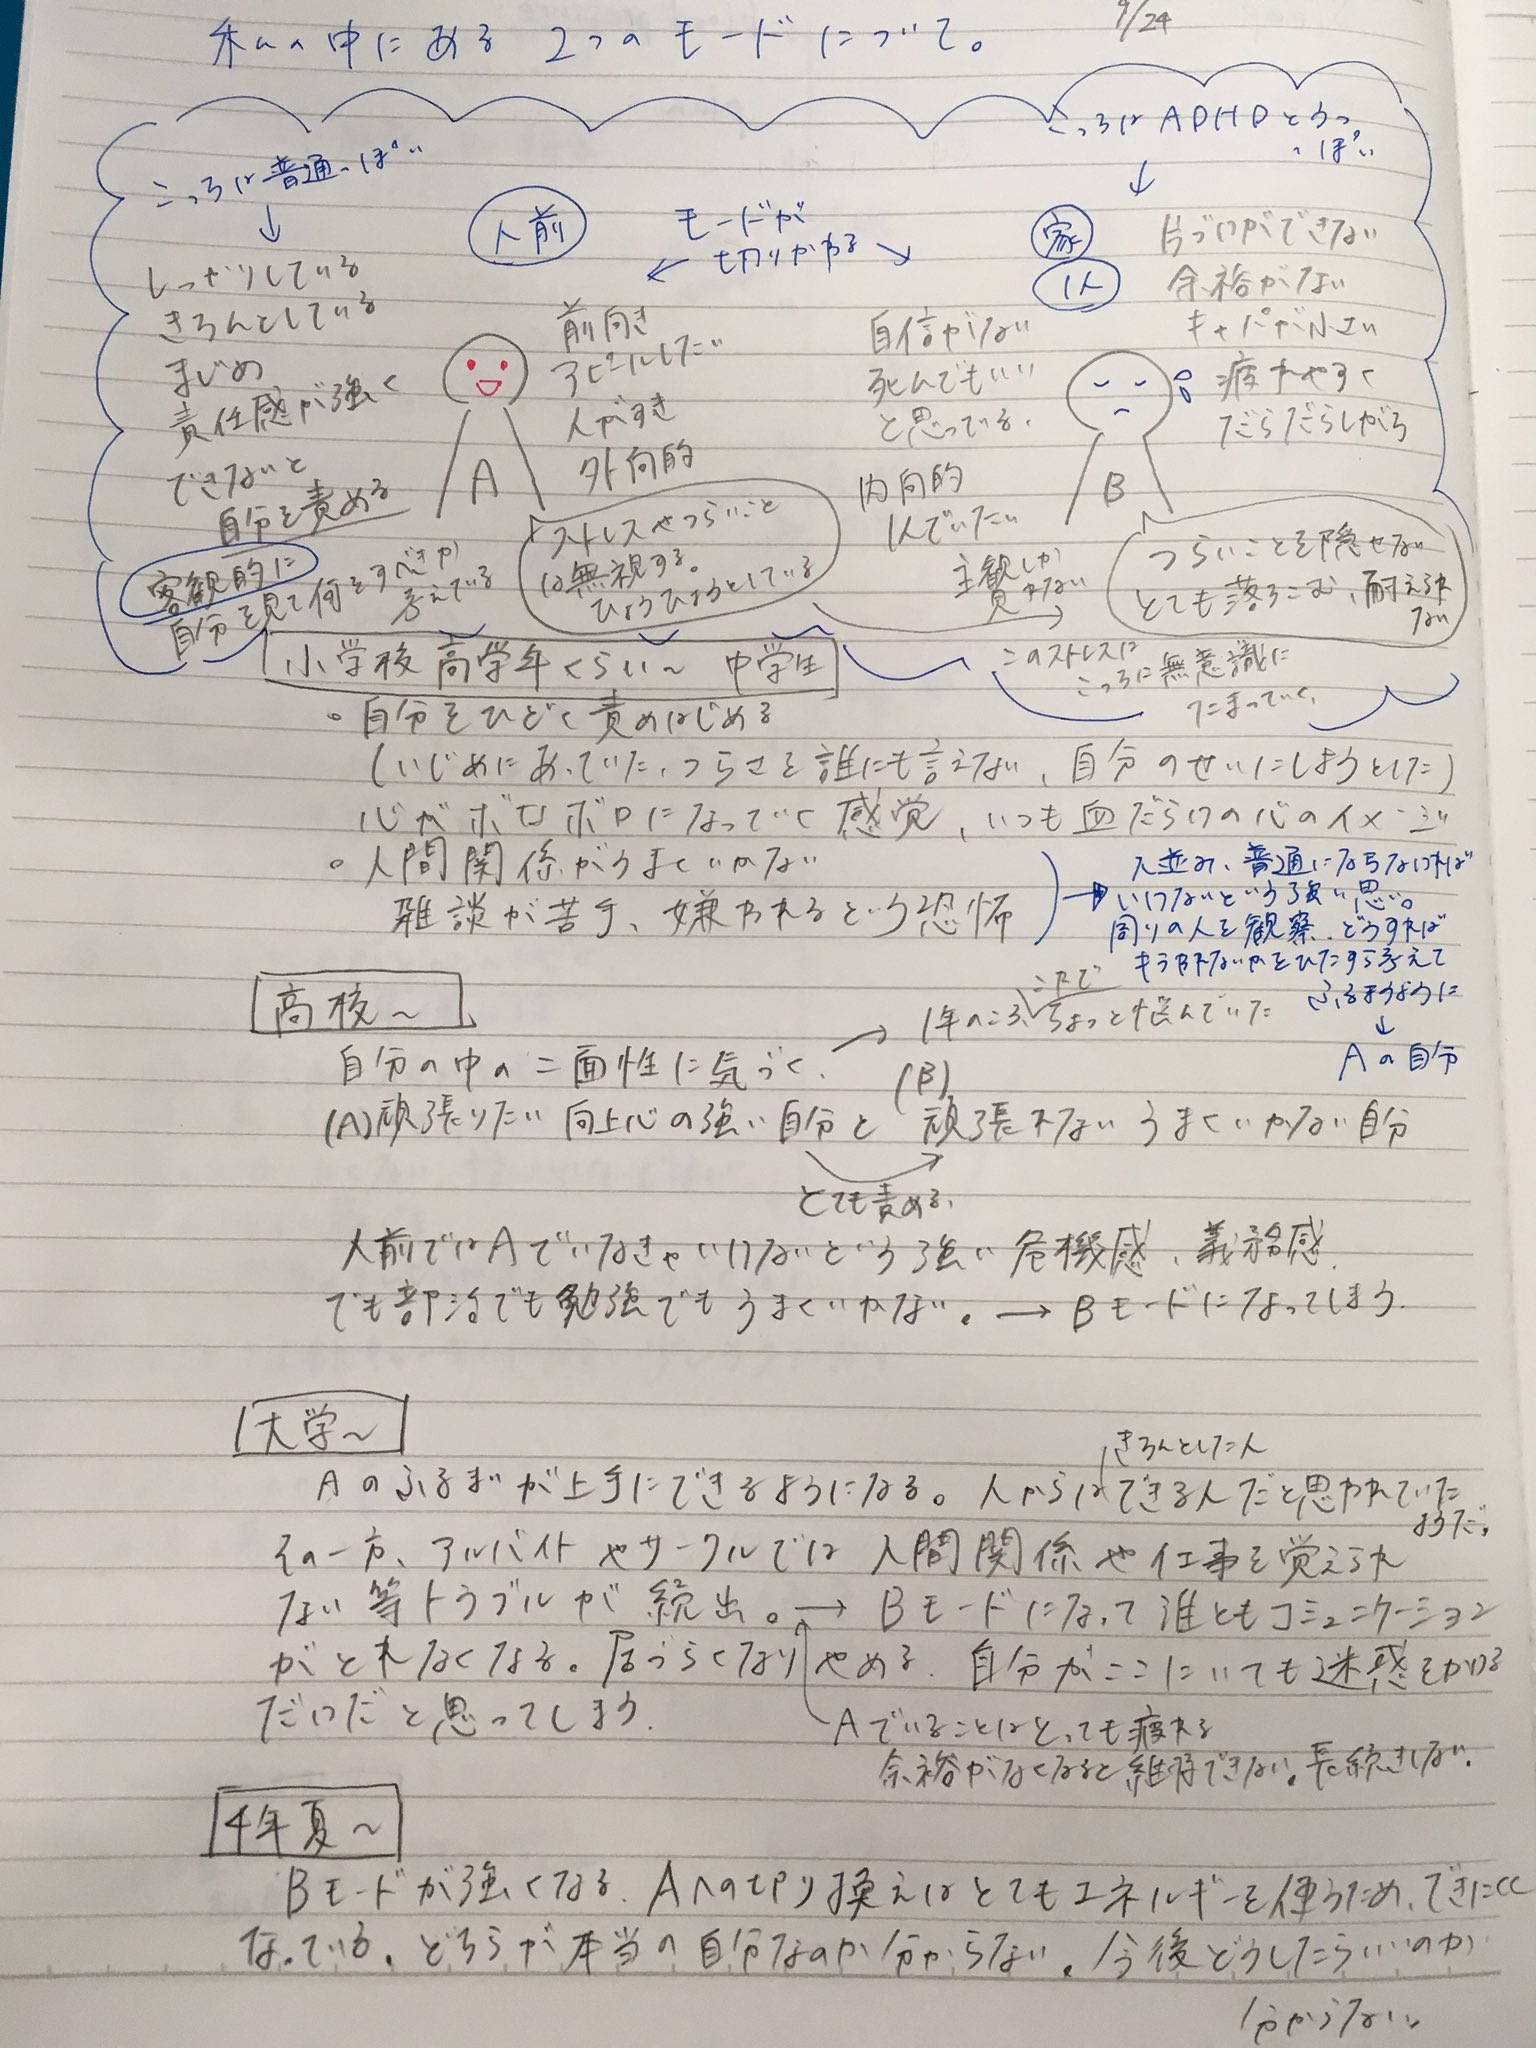 9/24
私の中にある 2つのモードについて。
こっちは普通っぽい
↓
しっかりしている
きちんとしている
まじめ
責任感が強く
できないと
自分を責める
客観的に
自分を見て何をすべきか
考えている
人前
モードが
切りかわる
前向き
アピールしたい
人がすき
外向的
A
ストレスやつらいこと
は無視する。
ひょうひょうとしている
こっちは ADHDとうつ
っぽい
↓
家
1人
片づけができない
余裕がない
キャパが小さい
疲れやすく
だらだらしがち
自信がない
死んでもいい
と思っている。
内向的
1人でいたい
主観しか
ない
B
つらいことを隠せない
とても落ちこむ、耐えられ
ない
このストレスは
こっちに無意識に
たまっていく。
小学校高学年くらい〜 中学生
。自分をひどく責めはじめる
(いじめにあっていた、つらさを誰にも言えない、自分のせいにしようとした)
心がボロボロになっていく感覚、いつも血だらけの心のイメージ
。人間関係がうまくいかない
雑談が苦手、嫌われるという恐怖
→ 人並み、普通にならなければ
いけないという強い思い。
周りの人を観察、どうすれば
きらわれないかをひたすら考えて
ふるまうように
↓
Aの自分
高校〜
自分の中の二面性に気づく、
→ 1年のころ、これでちょっと悩んでいた
(A)頑張りたい 向上心の強い自分と (B)頑張れない うまくいかない自分
とても責める、
人前ではAでいなきゃいけないという強い危機感、義務感、
でも部活でも勉強でもうまくいかない。→ Bモードになってしまう、
大学〜
Aのふるまいが上手にできるようになる。人からはきちんとした人、できる人だと思われていた
ようだ。
その一方、アルバイトやサークルでは人間関係や仕事を覚えられ
ない等トラブルが続出。→ Bモードになって誰ともコミュニケーション
がとれなくなる。居づらくなりやめる、自分がここにいても迷惑をかける
だけだと思ってしまう、
Aでいることはとっても疲れる
余裕がなくなると維持できない。長続きしない、
4年夏〜
Bモードが強くなる、Aへの切り換えはとてもエネルギーを使うため、できにくく
なっている。どちらが本当の自分なのか分からない。今後どうしたらいいのか
分からない。